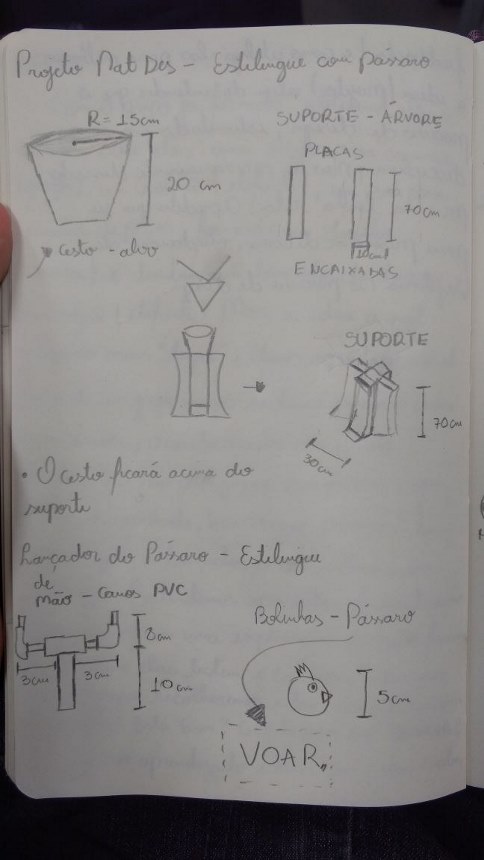 Projeto Mat Des - Estilingue com Pássaro
R = 15cm
20 cm
Cesto - alvo
SUPORTE - ÁRVORE
PLACAS
70cm
10cm
ENCAIXADAS
SUPORTE
70cm
30cm
• O cesto ficará acima do
suporte
Lançador do Pássaro - Estilingue
de
mão - Canos PVC
8cm
3cm
3cm
10cm
Bolinhas - Pássaro
5cm
VOAR.